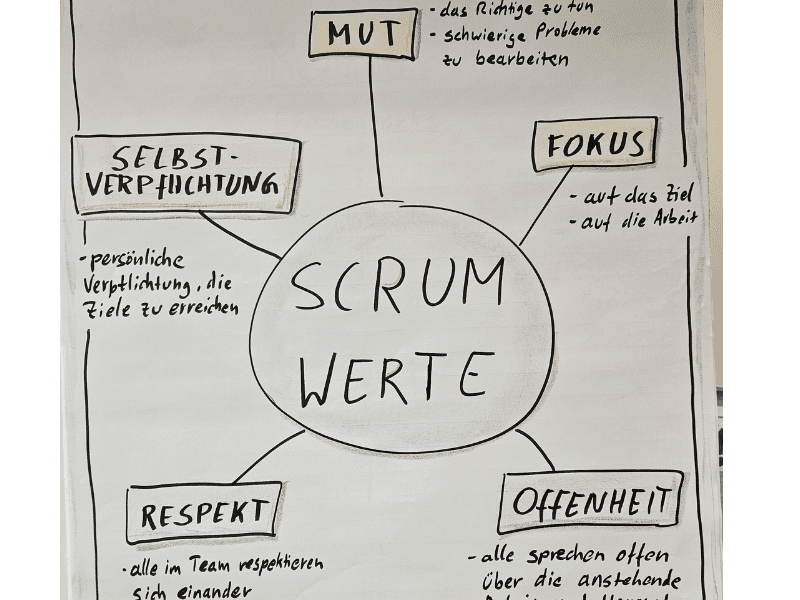 MUT
- das Richtige zu tun
- schwierige Probleme
zu bearbeiten
FOKUS
- auf das Ziel
- auf die Arbeit
SELBST-
VERPFLICHTUNG
- persönliche
Verpflichtung, die
Ziele zu erreichen
SCRUM
WERTE
RESPEKT
- alle im Team respektieren
sich einander
OFFENHEIT
- alle sprechen offen
über die anstehende